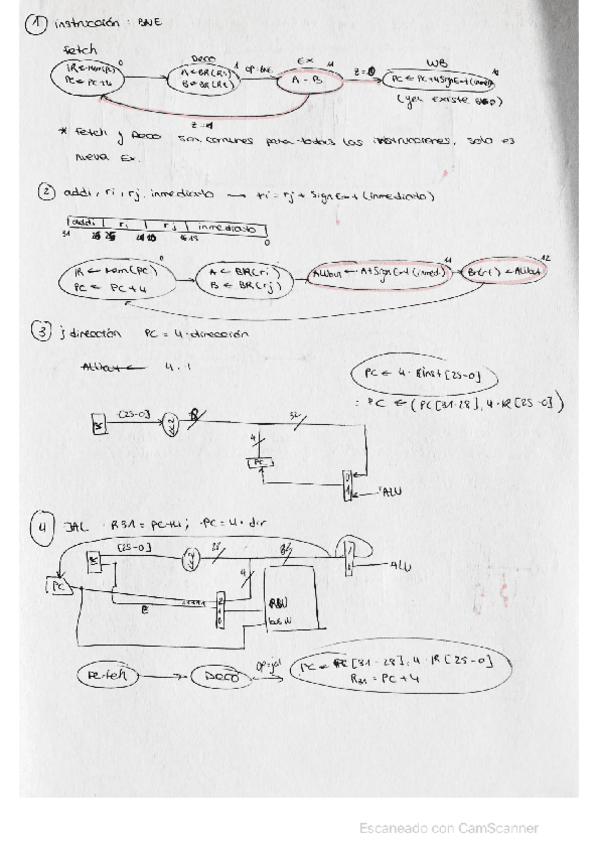 1 instrucción: BNE
Fetch Deco Ex WB
IR ← Mem(PC)
PC ← PC+4
A ← BR(Ri)
B ← BR(Rt)
OP=BNE
A - B
PC ← PC+4
(ya existe
* Fetch y Deco son comunes para todas las instrucciones, solo es
nueva Ex.
2 addi, ri, rj, inmediato → ri = rj + SignExt (inmediato)
addi ri rj inmediato
31 0
IR ← Mem(PC)
PC ← PC+4
A ← BR(ri)
B ← BR(rj)
ALUout ← A+SignExt(inmed.)
BR(ri) ← ALUout
3 j dirección PC = 4·dirección
ALUout ← 4.
PC ←
: PC ← (PC[31-28], 4·IR[25-0])
[25-0]
32
4
PC
0
1
ALU
4 JAL R31 = PC+4; PC = 4·dir
[25-0]
4
ALU
PC
Fetch
Deco
OP=jal
PC ← PC[31-28], 4·IR[25-0]
R31 = PC+4
Escaneado con CamScanner